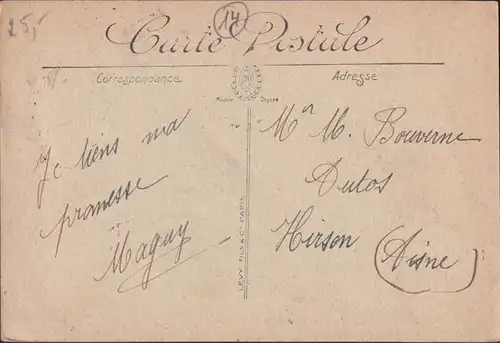 25,-
14
Carte Postale
Correspondance
Adresse
Modèle Déposé
Je tiens ma
promesse
Maguy
LEVY FILS & Cie PARIS
Mr M. Bouverne
Autos
Hirson (Aisne)